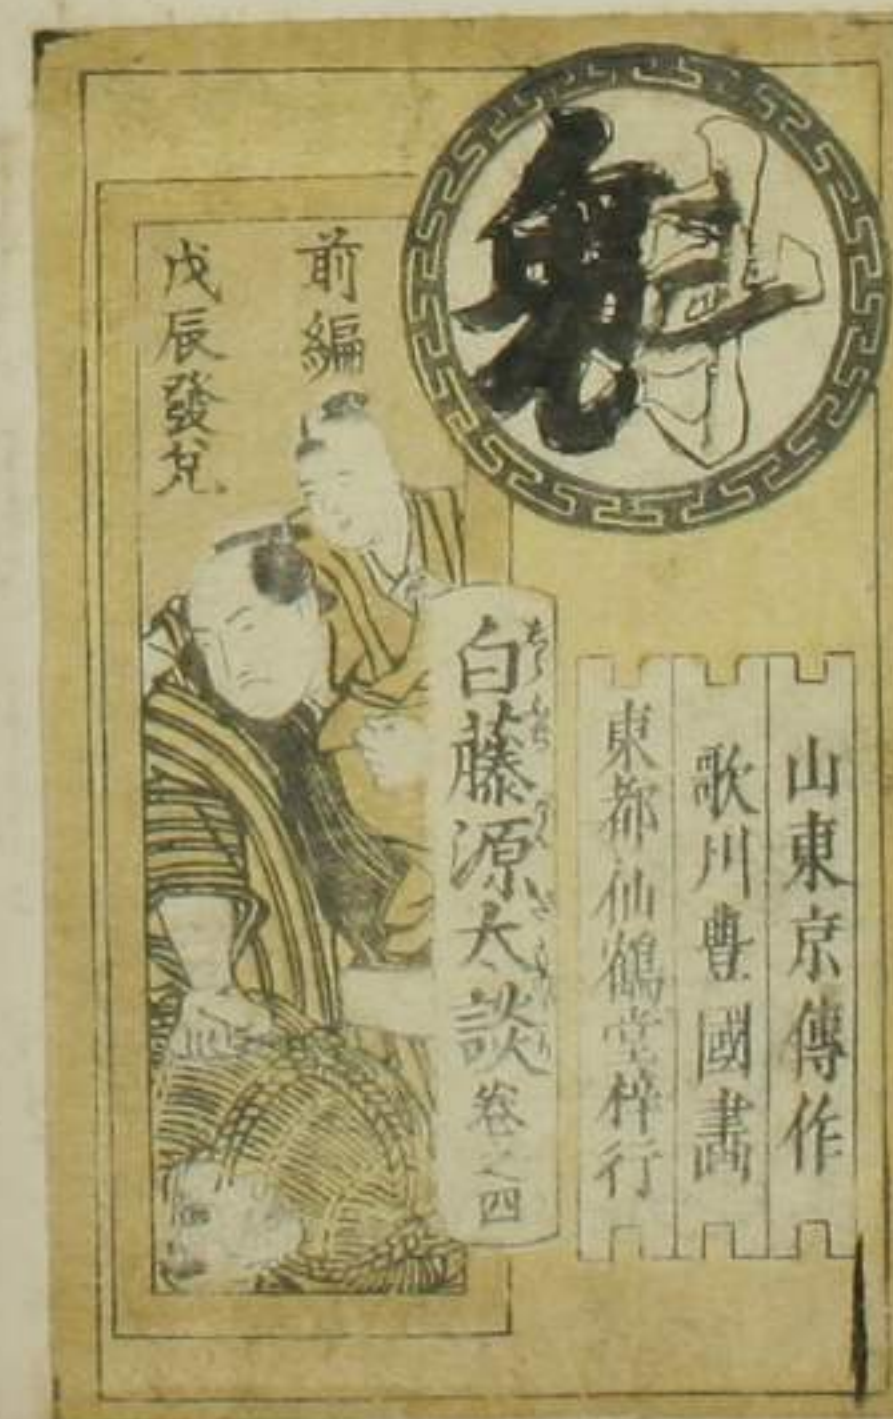 魁
山東京傳作
歌川豊國畫
東都仙鶴堂梓行
白藤源太談 卷之四
前編
戊辰發兌